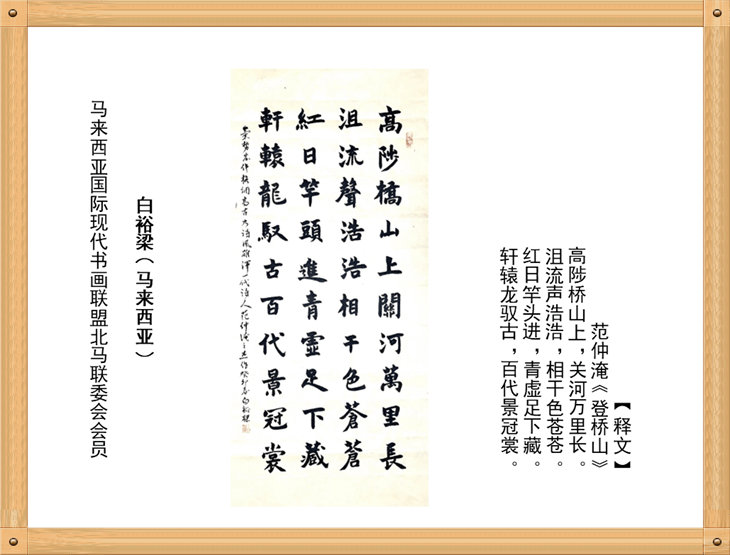 【释文】
范仲淹《登桥山》
高陟桥山上，关河万里长。
沮流声浩浩，相干色苍苍。
红日竿头进，青虚足下藏。
轩辕龙驭古，百代景冠裳。
高陟橋山上關河萬里長
沮流聲浩浩相干色蒼蒼
紅日竿頭進青霊足下藏
軒轅龍馭古百代景冠裳
白裕梁（马来西亚）
马来西亚国际现代书画联盟北马联委会会员